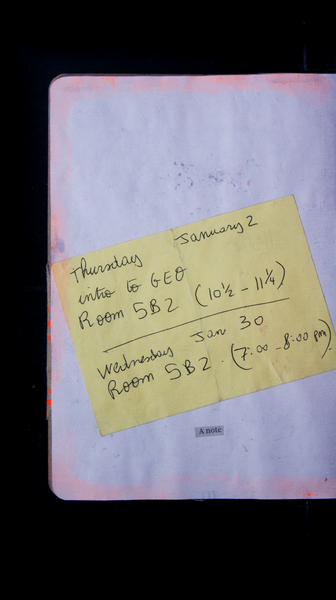 Thursday January 2
intro to GEO
Room 5B2 (10½ - 11¼)
Jan 30
Wednesday
Room 5B2. (7:00 - 8:00 pm)
A note